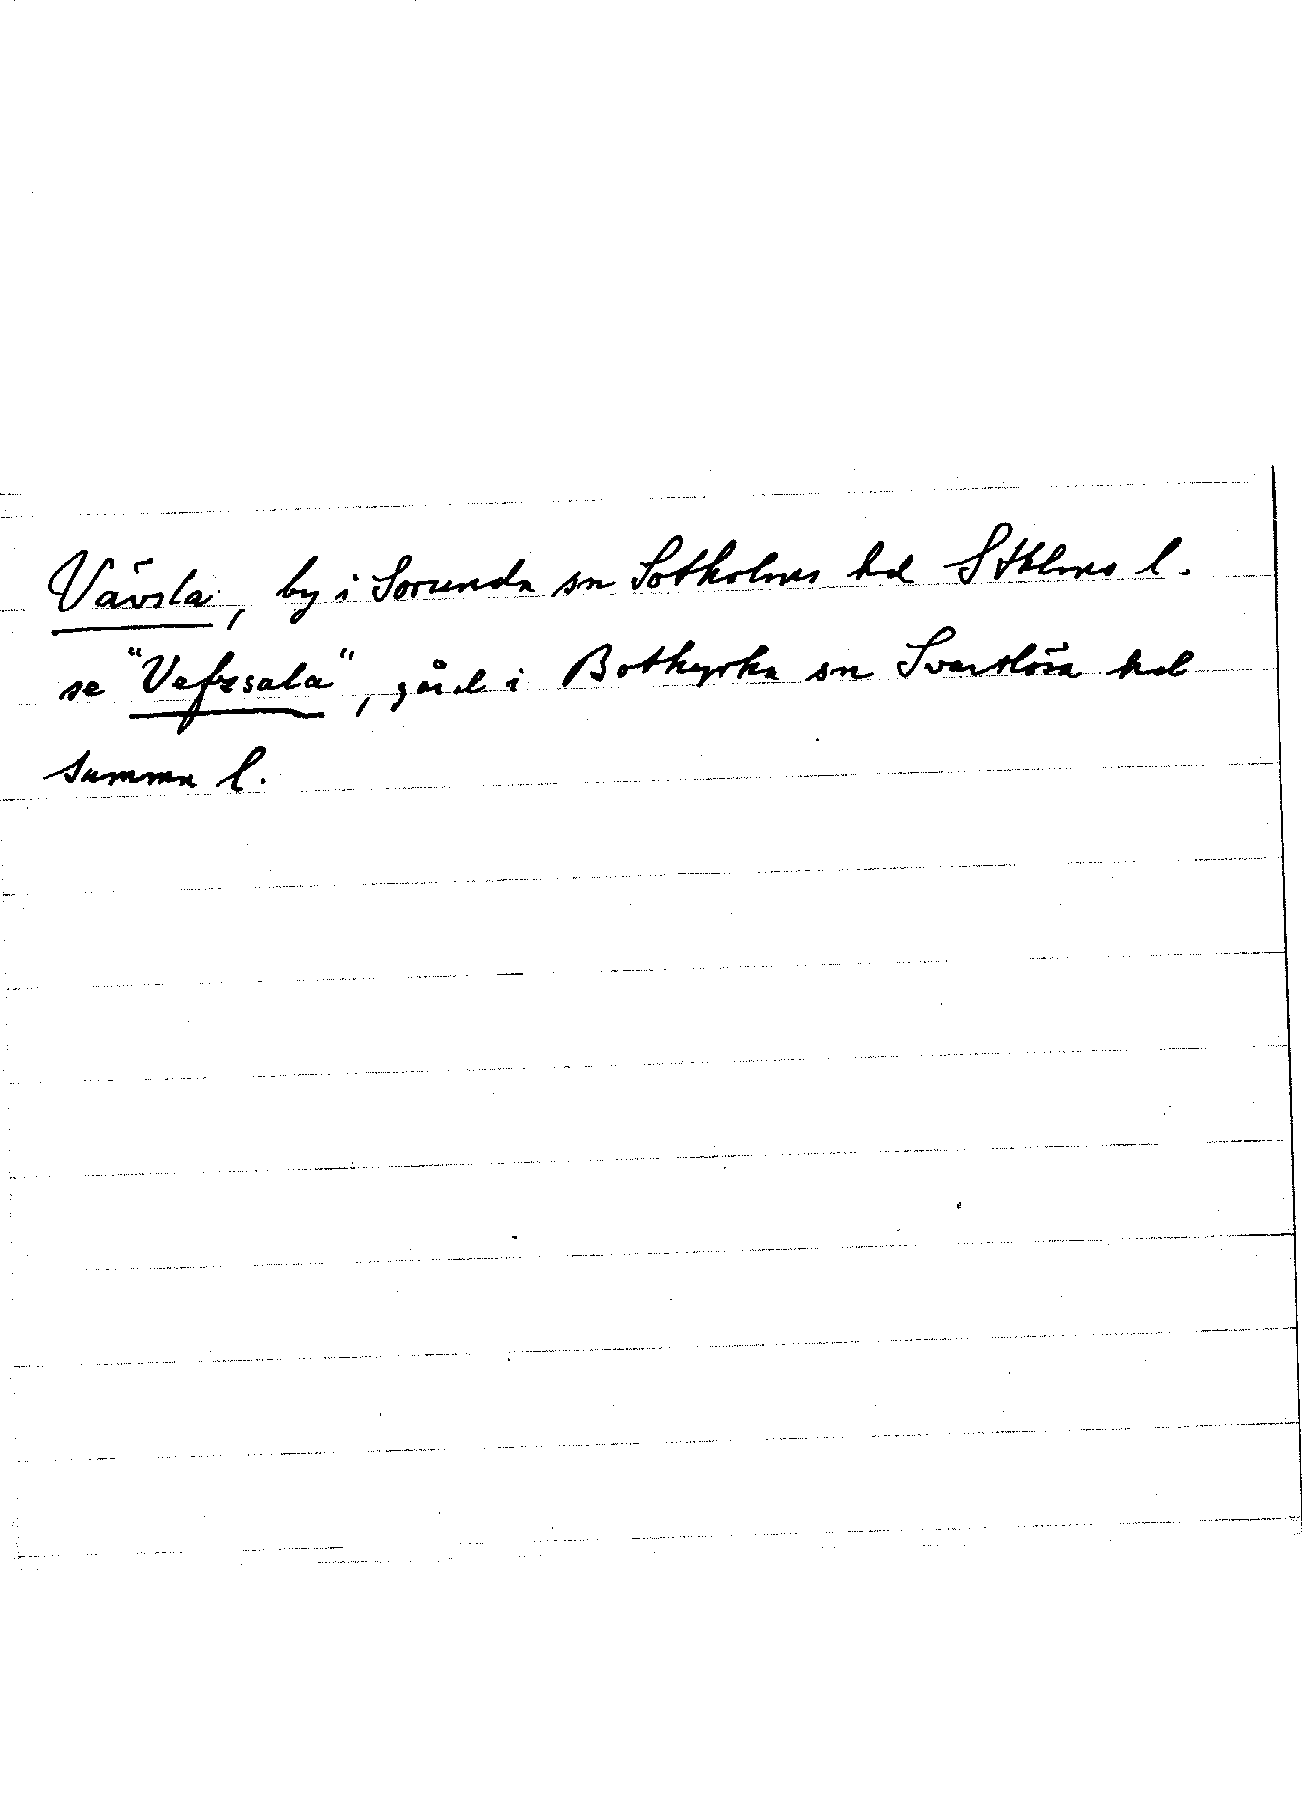 Vävsla, by i Sorunda sn Sotholms hd Sthlms l.
se "Vefzsala", gård i Botkyrka sn Svartlösa hd
samma l.